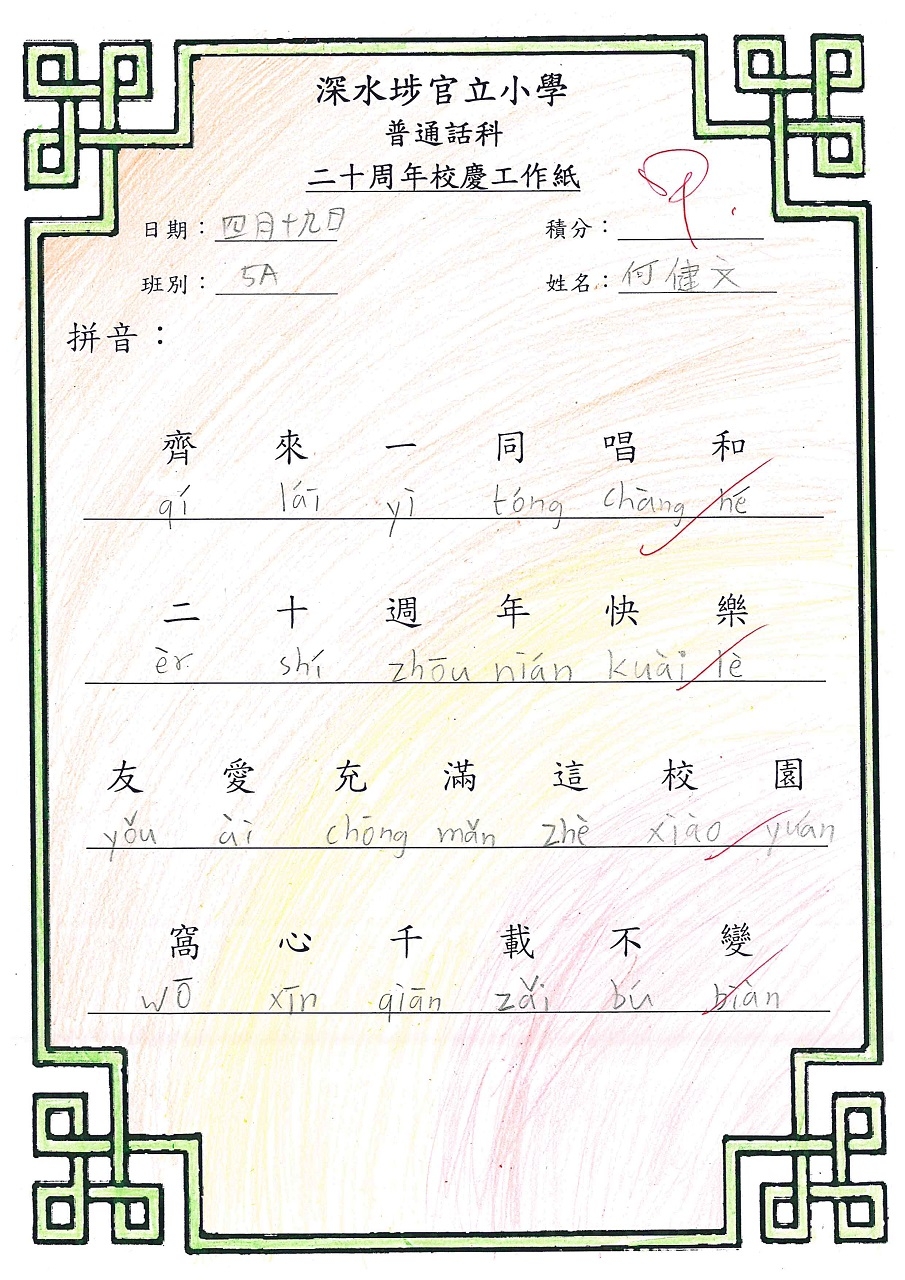 深水埗官立小學
普通話科
二十周年校慶工作紙
日期：四月十九日 積分：甲
班別：5A 姓名：何健文
拼音：
齊 來 一 同 唱 和
qí lái yì tóng chàng hé
二 十 週 年 快 樂
èr shí zhōu nián kuài lè
友 愛 充 滿 這 校 園
yǒu ài chōng mǎn zhè xiào yuán
窩 心 千 載 不 變
wō xīn qiān zǎi bú biàn